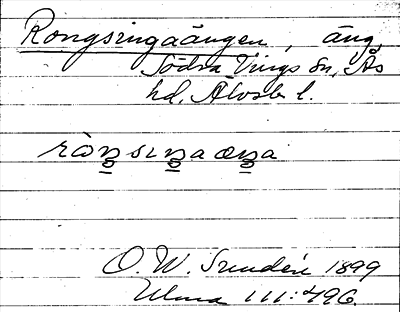 Rongsingaängen, äng,
Södra Vings sn, Ås
hd, Älvsb. l.
ràŋsıŋaæŋa
O. W. Sundén 1899
Ulma 111:496.